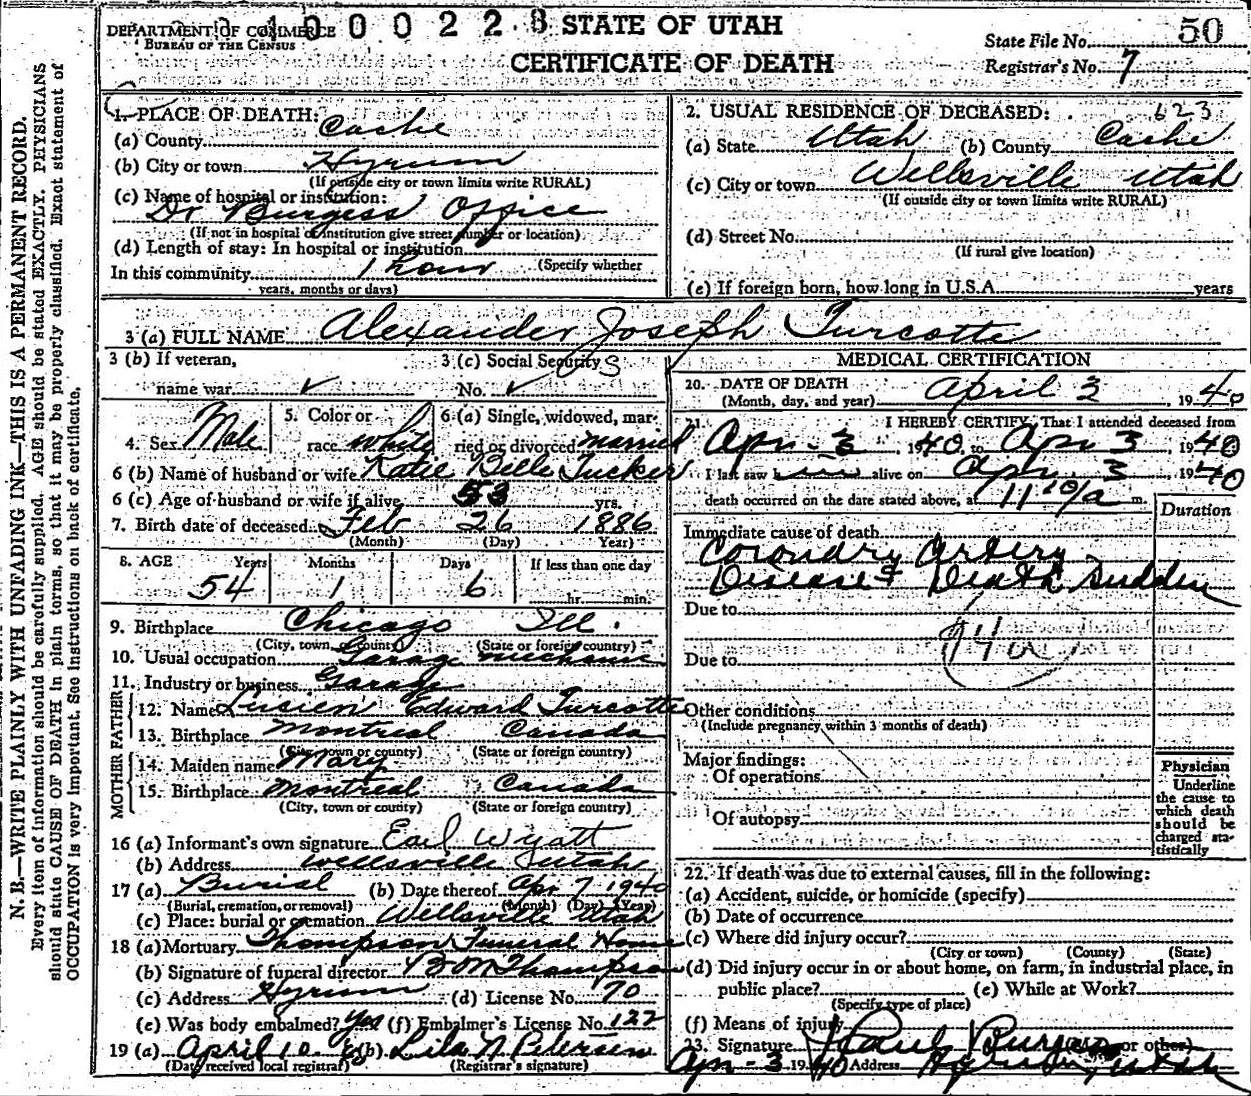 DEPARTMENT OF COMMERCE
BUREAU OF THE CENSUS
100022 8
STATE OF UTAH
CERTIFICATE OF DEATH
50
State File No.
Registrar's No. 7
N. B.—WRITE PLAINLY WITH UNFADING INK—THIS IS A PERMANENT RECORD.
Every item of information should be carefully supplied. AGE should be stated EXACTLY. PHYSICIANS
should state CAUSE OF DEATH in plain terms, so that it may be properly classified. Exact statement of
OCCUPATION is very important. See instructions on back of certificate.
1. PLACE OF DEATH:
(a) County Cache
(b) City or town Hyrum
(If outside city or town limits write RURAL)
(c) Name of hospital or institution:
Dr Burgess Office
(If not in hospital or institution give street number or location)
(d) Length of stay: In hospital or institution
In this community 1 hour (Specify whether
years, months or days)
2. USUAL RESIDENCE OF DECEASED: 623
(a) State Utah (b) County Cache
(c) City or town Wellsville Utah
(If outside city or town limits write RURAL)
(d) Street No.
(If rural give location)
(e) If foreign born, how long in U.S.A. years
3 (a) FULL NAME Alexander Joseph Turcotte
3 (b) If veteran,
name war ✓
3 (c) Social Security
No. ✓
4. Sex Male
5. Color or
race white
6 (a) Single, widowed, mar-
ried or divorced married
6 (b) Name of husband or wife Katie Belle Tucker
6 (c) Age of husband or wife if alive 53 yrs.
7. Birth date of deceased Feb 26 1886
(Month) (Day) Year)
8. AGE Years Months Days If less than one day
54 1 6 hr. min.
9. Birthplace Chicago Ill.
(City, town, county) (State or foreign country)
10. Usual occupation Garage mechanic
11. Industry or business Garage
FATHER
12. Name Lusien Edward Turcotte
13. Birthplace Montreal Canada
(City, town or county) (State or foreign country)
MOTHER
14. Maiden name Mary
15. Birthplace Montreal Canada
(City, town or county) (State or foreign country)
16 (a) Informant's own signature Earl Wyatt
(b) Address Wellsville Utah
17 (a) Burial (b) Date thereof Apr 7 1940
(Burial, cremation, or removal) (Month) (Day) (Year)
(c) Place: burial or cremation Wellsville Utah
18 (a) Mortuary Thompson Funeral Home
(b) Signature of funeral director B M Thompson
(c) Address Hyrum (d) License No. 70
(e) Was body embalmed? Yes (f) Embalmer's License No. 122
19 (a) April 10 (b) Lila N Petersen
(Date received local registrar) (Registrar's signature)
MEDICAL CERTIFICATION
20. DATE OF DEATH
(Month, day, and year) April 3, 1940
21. I HEREBY CERTIFY, That I attended deceased from
Apr - 3 1940, to Apr 3 1940
I last saw him alive on Apr 3 1940
death occurred on the date stated above, at 11 10/a m.
Duration
Immediate cause of death
Coronary Artery
Disease & Death Sudden
Due to
94a
Due to
Other conditions
(Include pregnancy within 3 months of death)
Major findings:
Of operations
Of autopsy
Physician
Underline
the cause to
which death
should be
charged sta-
tistically
22. If death was due to external causes, fill in the following:
(a) Accident, suicide, or homicide (specify)
(b) Date of occurrence
(c) Where did injury occur?
(City or town) (County) (State)
(d) Did injury occur in or about home, on farm, in industrial place, in
public place? (e) While at Work?
(Specify type of place)
(f) Means of injury
23. Signature Paul Burgess or other)
Apr - 3 1940 Address Hyrum, Utah